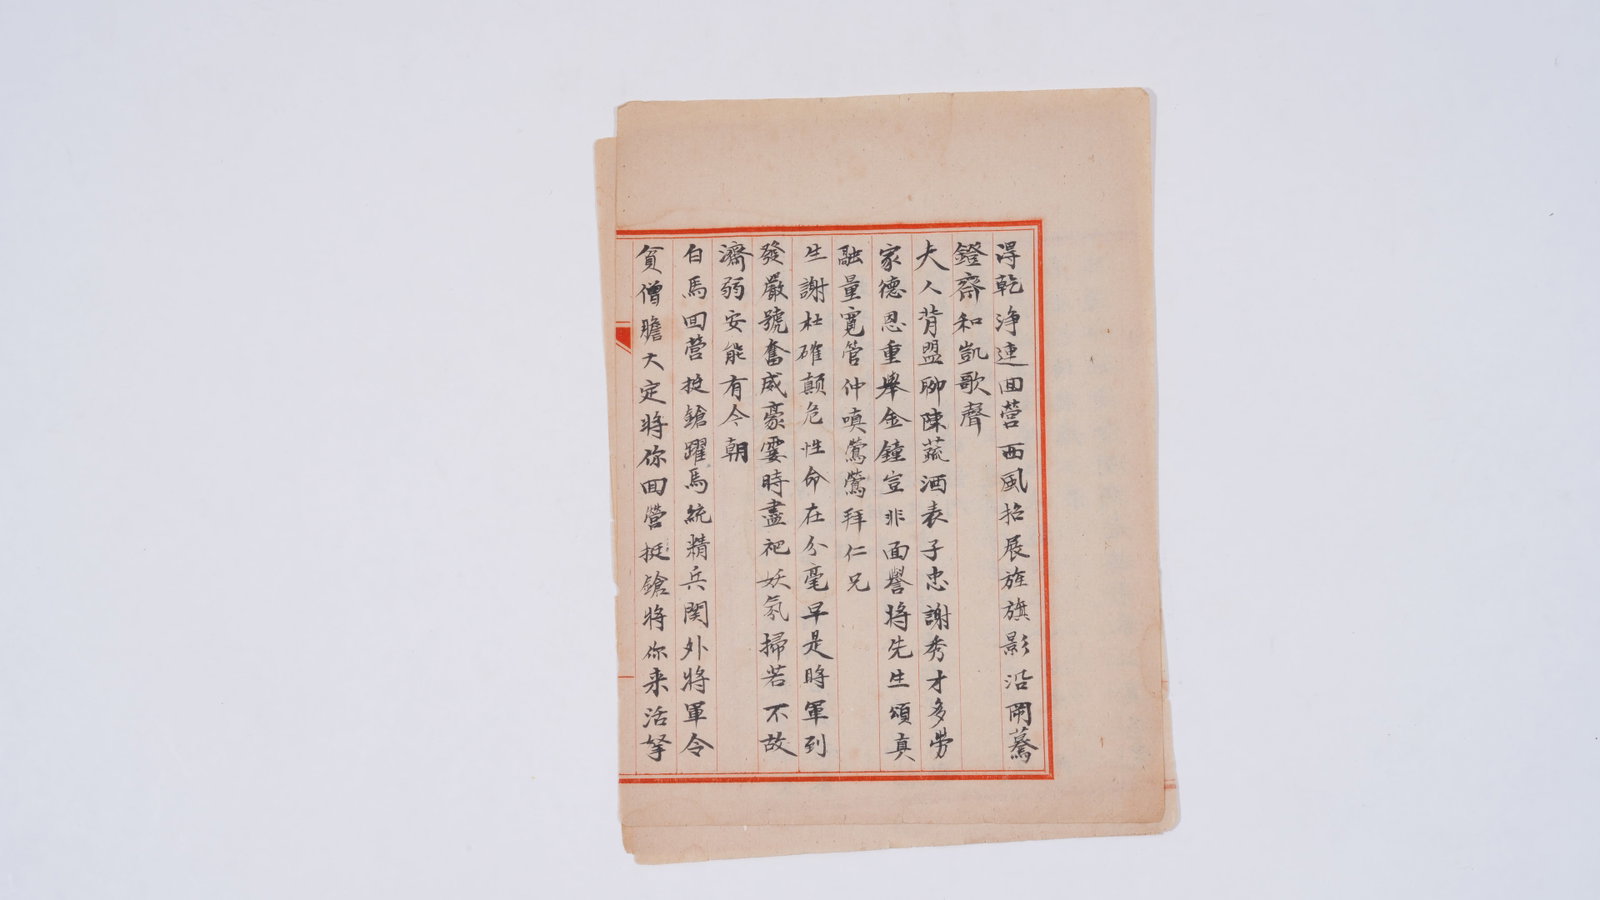 得乾净連回营西風招展旌旗影沿門驀
鐙齋和凱歌聲
夫人背盟聊陳蔬酒表子忠謝秀才多勞
家德恩重舉金鐘豈非面譽將先生頌真
融量寬管仲嗔鶯鶯拜仁兄
生謝杜確顛危性命在分毫早是時軍到
發嚴號奮威豪霎時盡祀妖氛掃若不故
濟弱安能有今朝
白馬回营挺鎗躍馬統精兵関外將軍令
貧僧膽大定將你回營挺鎗將你来活拏